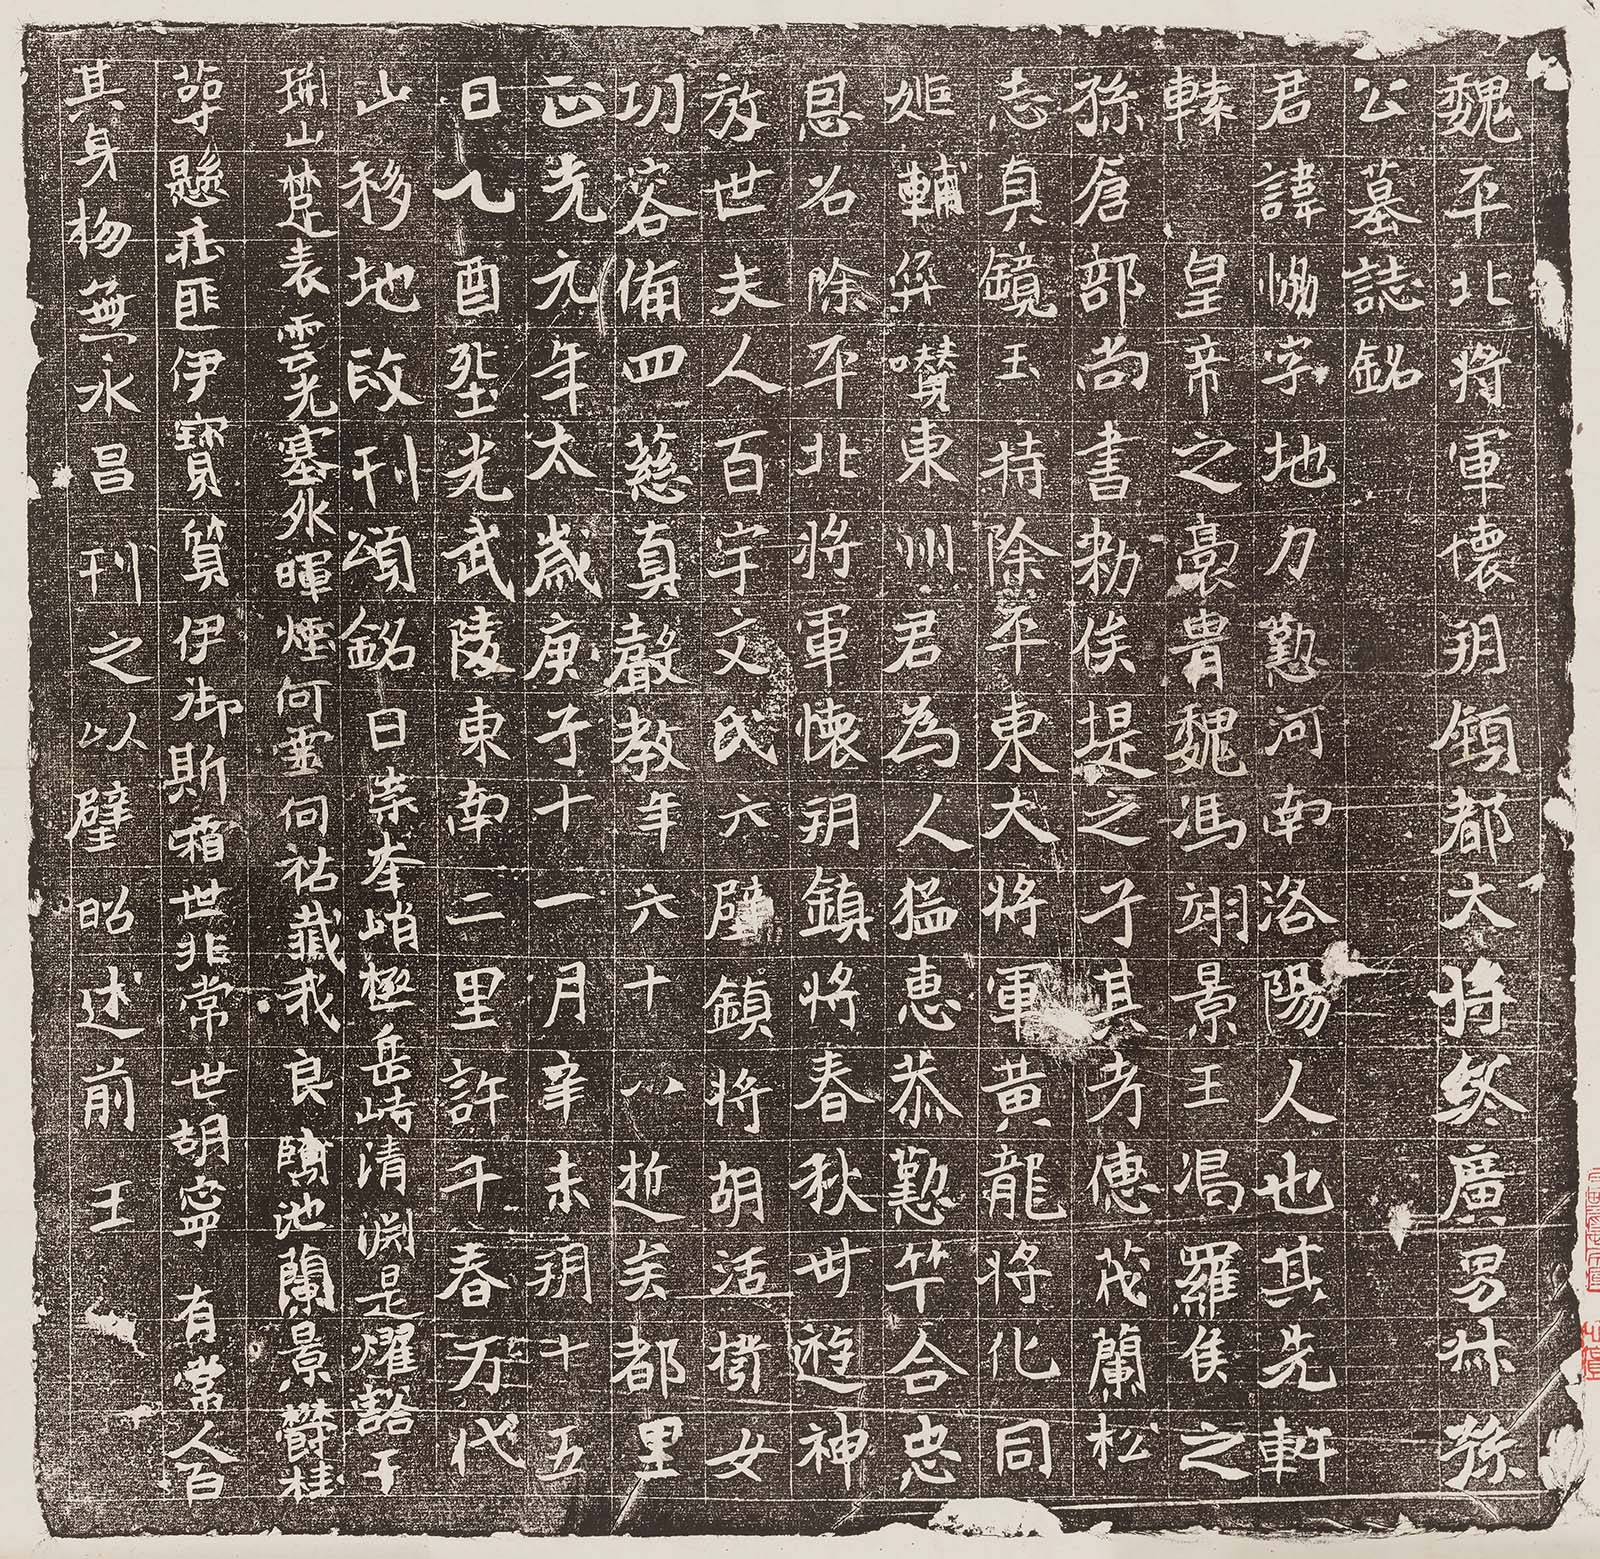 魏平北將軍懷朔鎮都大將終廣男叔孫
公墓誌銘
君諱協字地力懃河南洛陽人也其先軒
轅皇帝之裔胄魏馮翊景王渴羅侯之
孫倉部尚書敕俟堤之子其考德茂蘭松
志真鏡玉特除平東大將軍黃龍將化同
姬輔弈囋東州君為人猛惠恭懃竿合忠
恩名除平北將軍懷朔鎮將春秋毋遊神
放世夫人百宇文氏六壁鎮將胡活撥女
功容備四慈真聲教年六十八逝矣都里
正光元年太歲庚子十一月辛未朔十五
日乙酉塋光武陵東南二里許千春万代
山移地改刊頌銘曰崇峯岶極岳峙清渊是燿豁于
荊山楚表雲光塞外暉煙何靈何祐藏我良陰池蘭景欝桂
蕚懸庄匪伊寶質伊御斯葙世非常世胡寧有常人百
其身楊無永昌刊之以壁昭述前王